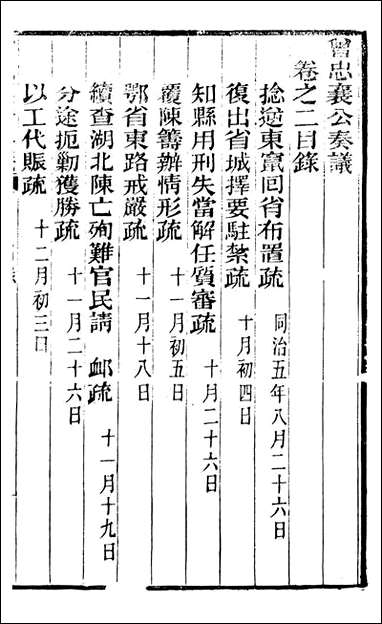 曾忠襄公奏議
卷之二目錄
捻逆東竄回省布置疏 同治五年八月二十六日
復出省城擇要駐紮疏 十月初四日
知縣用刑失當解任質審疏 十月二十六日
覆陳籌辦情形疏 十一月初五日
鄂省東路戒嚴疏 十一月十八日
續查湖北陳亡殉難官民請 卹疏 十一月十九日
分途扼勦獲勝疏 十一月二十六日
以工代賑疏 十二月初三日